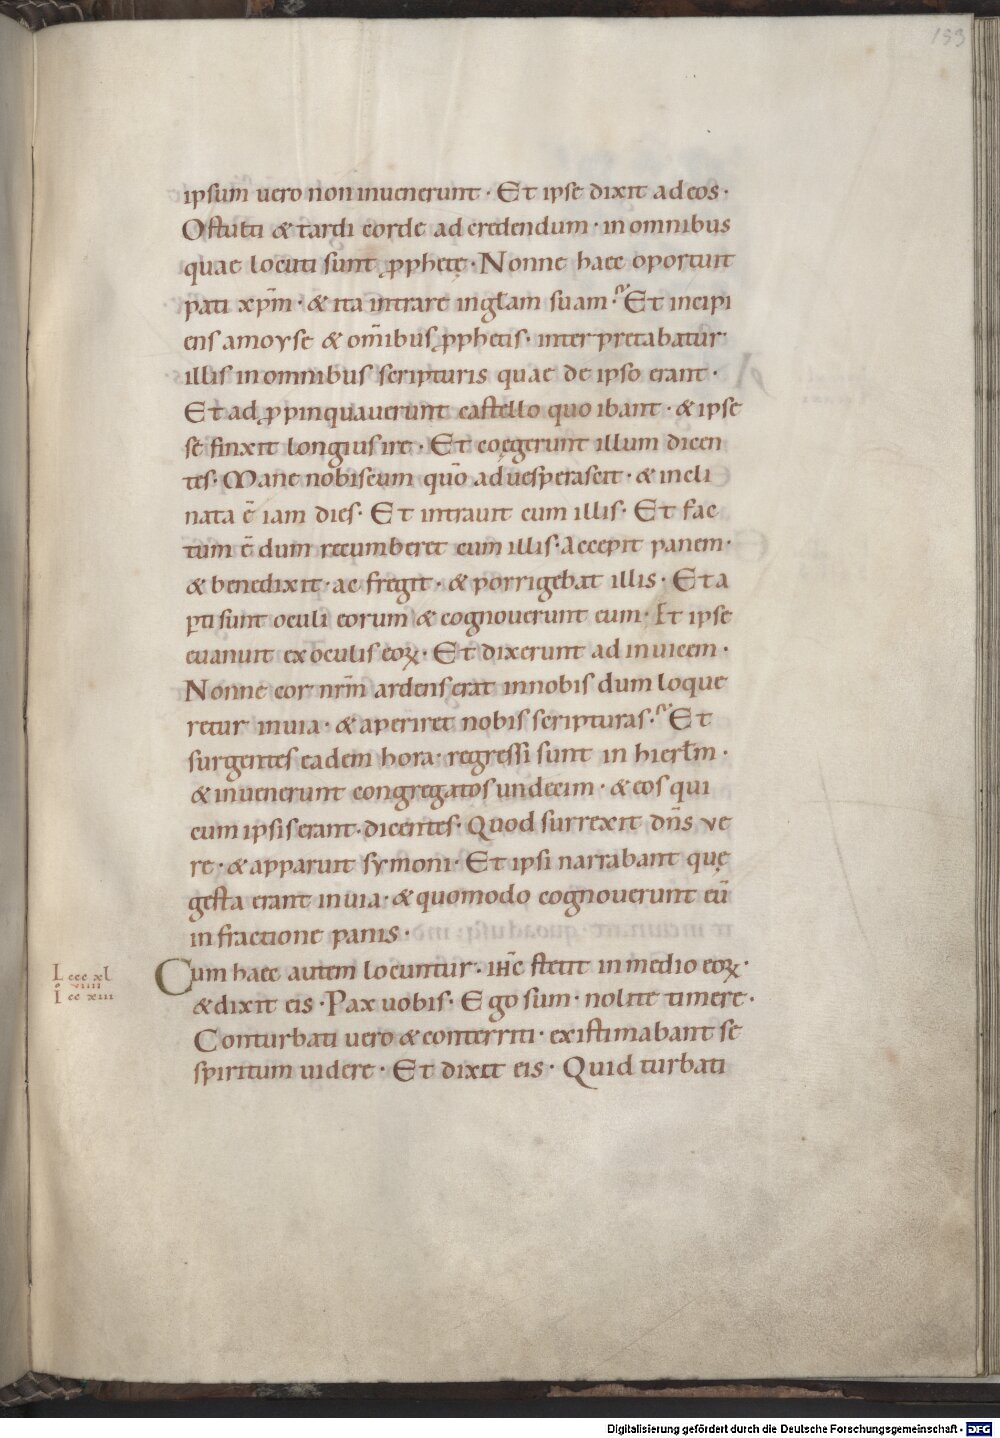 133
ipsum vero non invenerunt · Et ipse dixit ad eos ·
O stulti & tardi corde ad credendum · in omnibus
quae locuti sunt ꝓphetę · Nonne haec oportuit
pati xp̄m · & ita intrare in gl̄am suam · Et incipi
ens a moyse & om̄ibus ꝓphetis · interpretabatur
illis in omnibus scripturis quae de ipso erant ·
Et adꝓpinquaverunt castello quo ibant · & ipse
se finxit longius ire · Et coęgerunt illum dicen
tes · Mane nobiscum quō advesperascit · & incli
nata ē iam dies · Et intravit cum illis · Et fac
tum ē dum recumberet cum illis · Accepit panem ·
& benedixit · ac fregit · & porrigebat illis · Et a
ꝑti sunt oculi eorum & cognoverunt eum · Et ipse
evanuit ex oculis eoꝝ · Et dixerunt ad invicem ·
Nonne cor nrm̄ ardens erat in nobis dum loque
retur in via · & aperiret nobis scripturas · Et
surgentes eadem hora · regressi sunt in hierl̄m ·
& invenerunt congregatos undecim · & eos qui
cum ipsis erant · dicentes · Quod surrexit dn̄s ve
re · & apparuit symoni · Et ipsi narrabant quę
gesta erant in via · & quomodo cognoverunt eū
in fractione panis ·
L ccc xl
o viiii
I cc xiii
Cum haec autem locuntur · ihc̄ stetit in medio eoꝝ ·
& dixit eis · Pax vobis · Ego sum · nolite timere ·
Conturbati vero & conterriti · existimabant se
spiritum videre · Et dixit eis · Quid turbati
Digitalisierung gefördert durch die Deutsche Forschungsgemeinschaft - DFG